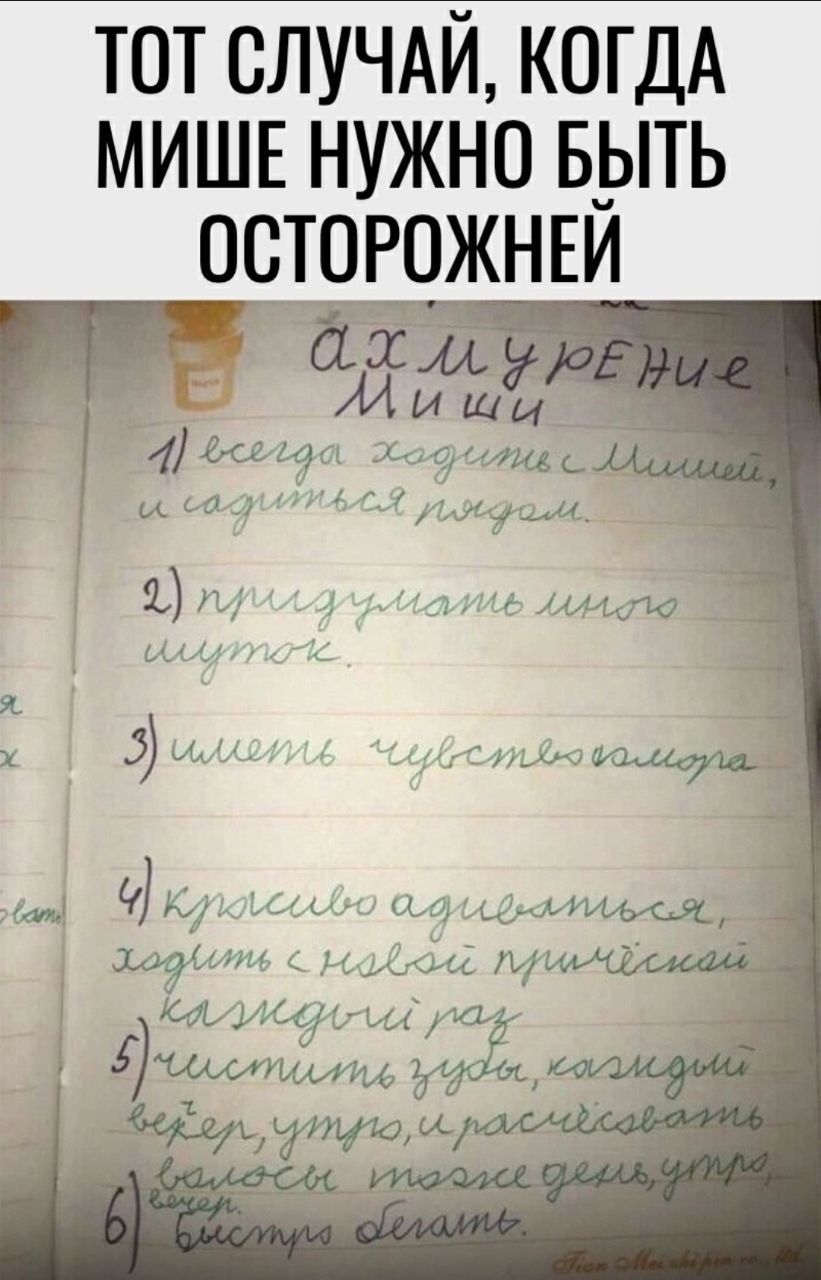 ТОТ СЛУЧАЙ, КОГДА
МИШЕ НУЖНО БЫТЬ
ОСТОРОЖНЕЙ
ахмурЕние
Миши
1) всегда ходить с Мишей,
и садиться рядом.
2) придумать много
шуток.
3) иметь чувство юмора
4) красиво адиваться,
ходить с новой причёской
каждый раз
5) чистить зубы, каждый
вечер, утро, и расчёсовать
волосы тоже день, утро,
вечер.
6) Быстро бегать.
я
х
овать